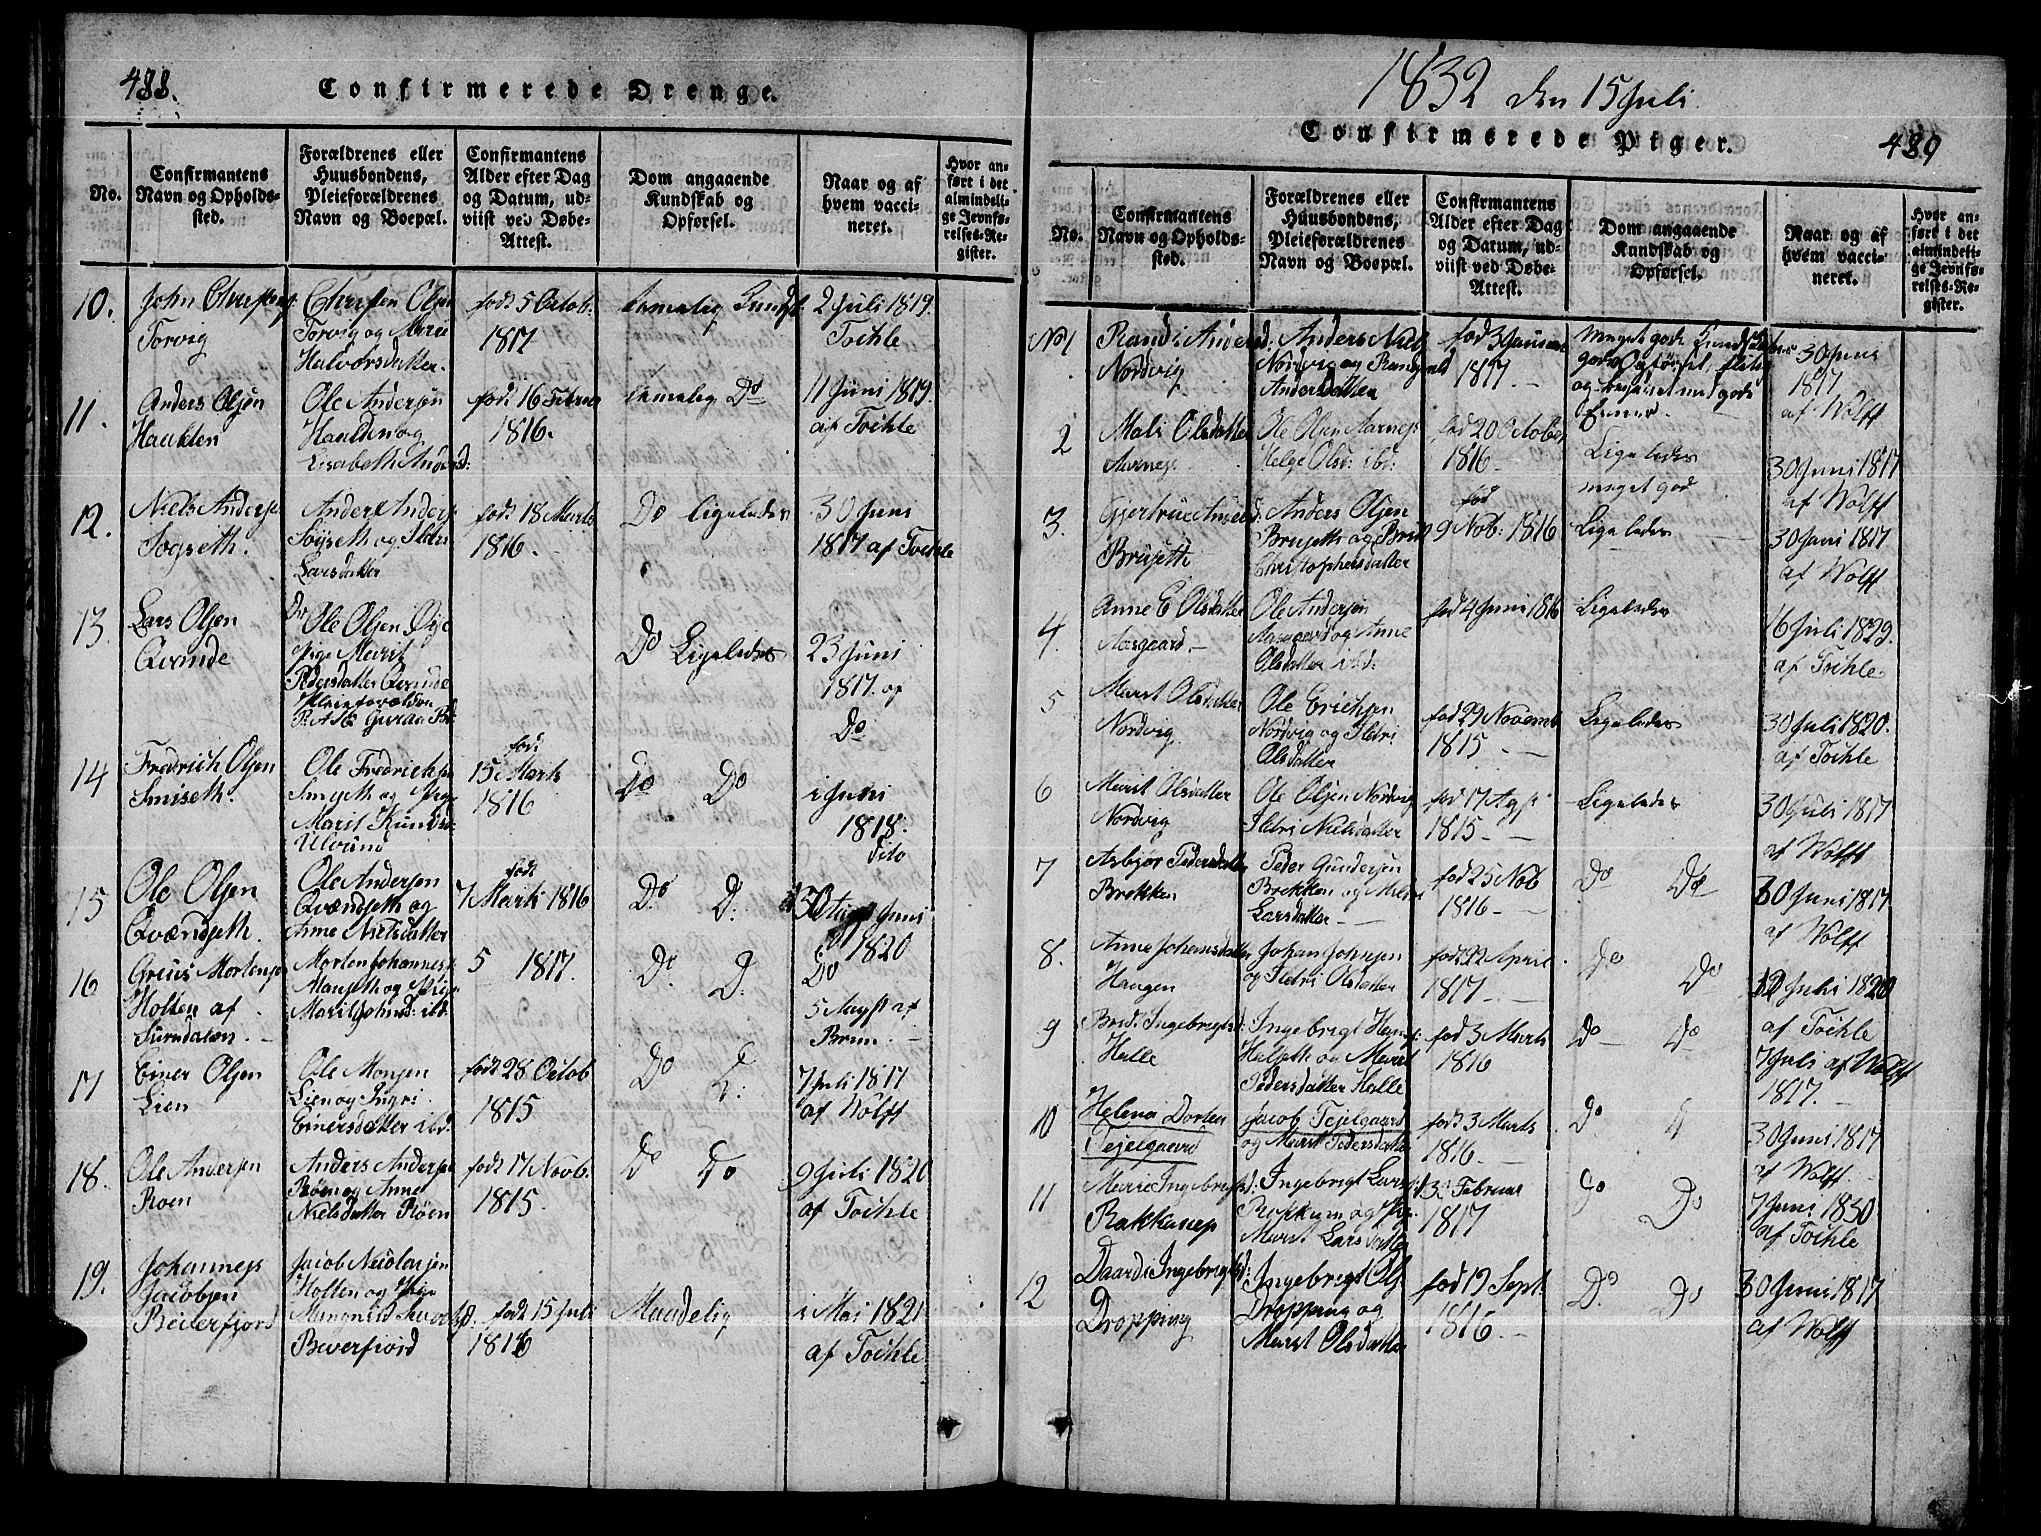 488.
Confirmerede Drenge.
No.
Confirmantens Navn og Opholdssted.
Forældrenes eller Huusbondens, Pleieforældrenes Navn og Boepæl.
Confirmantens Alder efter Dag og Datum, udviist ved Døbe-Attest.
Dom angaaende Kundskab og Opførsel.
Naar og af hvem vaccineret.
Hvor anført i det almindelige Jevnførelses-Register.
10.
Torvig
Christen Olsen
Torvig og
Halvorsdatter.
født 5 Octob.
1817
temmelig
2 Juli 1819.
Toihle
11.
Anders Olsen
Ole Andersen
født 16 Februar
1816.
temmelig Do
11 Juni 1819.
af Toihle
12.
Niels Anders
Sogseth.
Anders Anders
Sogseth og Ildri
Larsdatter
født 18 Marts
1816.
Do ligeledes
30 Juni
1817 af Toihle
13
Lars Olsen
Qvinde
Ole Olsen
Marit
Pedersdatter Qvinde
Do Ligeledes
23 Juni
1817. af
Do
14
Fredrich Olsen
Smiseth.
Ole Fredrichsen
Smiseth og
Marit
født
15 Marts
1816
Do Do
1 Juni
1818.
dito
15
Ole Olsen
Qvændseth.
Ole Andersen
Qvændseth og
Anne Nielsdatter
født
7 Marts 1816
Do D.
Juni
1820
16
Mortensen
Holten af
Surndalen.
Morten Johannes
5 1817
Do D.
Do
5 af
Brun.
17
Einer Olsen
Lien
Ole Monsen
Lien og Ingri
Einersdatter ibd.
født 28 Octob
1815
Do D.
7 Juli 1817
af Wolff
18.
Ole Andersen
Roen
Anders Andersen
Røen og Anne
Nielsdatter Røen
født 17 Novb.
1815.
Do Do
9 Juli 1820
af Toihle
19.
Johannes
Jacobsen
Jacob Nicolaisen
Holten og
Beverfiord
født 15 Juli
1816
Maadelig
1 Mai 1821
af Toihle
1832 den 15 Juli
Confirmerede Piger.
489
No.
Confirmantens Navn og Opholdssted.
Forældrenes eller Huusbondens, Pleieforældrenes Navn og Boepæl.
Confirmantens Alder efter Dag og Datum, udviist ved Døbe-Attest.
Dom angaaende Kundskab og Opførsel.
Naar og af hvem vaccineret.
Hvor anført i det almindelige Jevnførelses-Register.
No 1
Randi Andersd:
Nordvig
Anders Niels
Nordvig og
Andersdatter
fød 3 Januar
1817
meget gode Kundskaber
gode Opførsel, flitig
og begavet med gode
Evner.
30 Juni
1817
af Wolff
2
Mali Olsdatter
Aarnes
Ole Olsen Aarnes
Helge Olsd: ibd:
fød 20 October
1816
Ligeledes
meget god
30 Juni 1817
af Wolff
3.
Gjertrue Andersd:
Bruseth
Anders Olsen
Bruseth og Brit
Christophersdatter
fød
9 Nob: 1816
Ligeledes
30 Juni 1817
af Wolff
4.
Anne E Olsdatter
Aasgaard
Ole Andersen
Aasgaard og Anne
Olsdatter ibd:
fød 4 Juni 1816
Ligeledes
16 Juli 1829.
af Toihle
5
Marit Olsdatter
Nordvig
Ole Erichsen
Nordvig og Ildri
Olsdatter
fød 29 Novemb
1815
Ligeledes
30 Juli 1820.
af Toihle
6
Marit Olsdatter
Nordvig
Ole Olsen Nordvig
Ildri Nielsdatter
fød 17
1815
Ligeledes
30 Juli 1817
af Wolff
7
Asbjør Pedersdatter
Brekken
Peder Gundersen
Brekken og
Larsdatter
fød 25 Nob
1816
Do Do
30 Juni 1817
af Wolff
8.
Anne Johansdatter
Haugen
Johan Johnsen
og Ildri Olsdatter
fød 22 April
1817
Do Do
12 Juli 1820
af Toihle
9
Brit Ingebrigtsd:
Halle
Ingebrigt Hans:
Halseth og Marit
Pedersdatter Halle
fød 3 Marts
1816
Do Do
7 Juli af Wolff
1817.
10
Helena Dortea
Tejelgaard
Jacob Tejelgaard
og Marit Pedersdatter
fød 3 Marts
1816
Do
30 Juni 1817
af Wolff.
11
Ingebrigtsd:
Ingebrigt Lars
Marit Larsdatter
Februar
1817
Do Do
7 Juni 1830
af Toihle
12
Daardi Ingebrigtsd:
Dropping
Ingebrigt Ols
Dropping og
Marit Olsdatter
fød 19 Sept.
1816
Do Do
30 Juni 1817
af Wolff